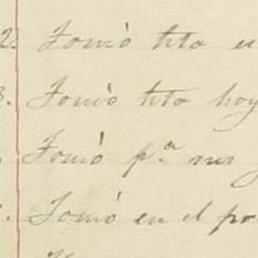 2. Tomó tito en
3. Tomó tito hoy
Tomó p.ª sus
Tomó en el po